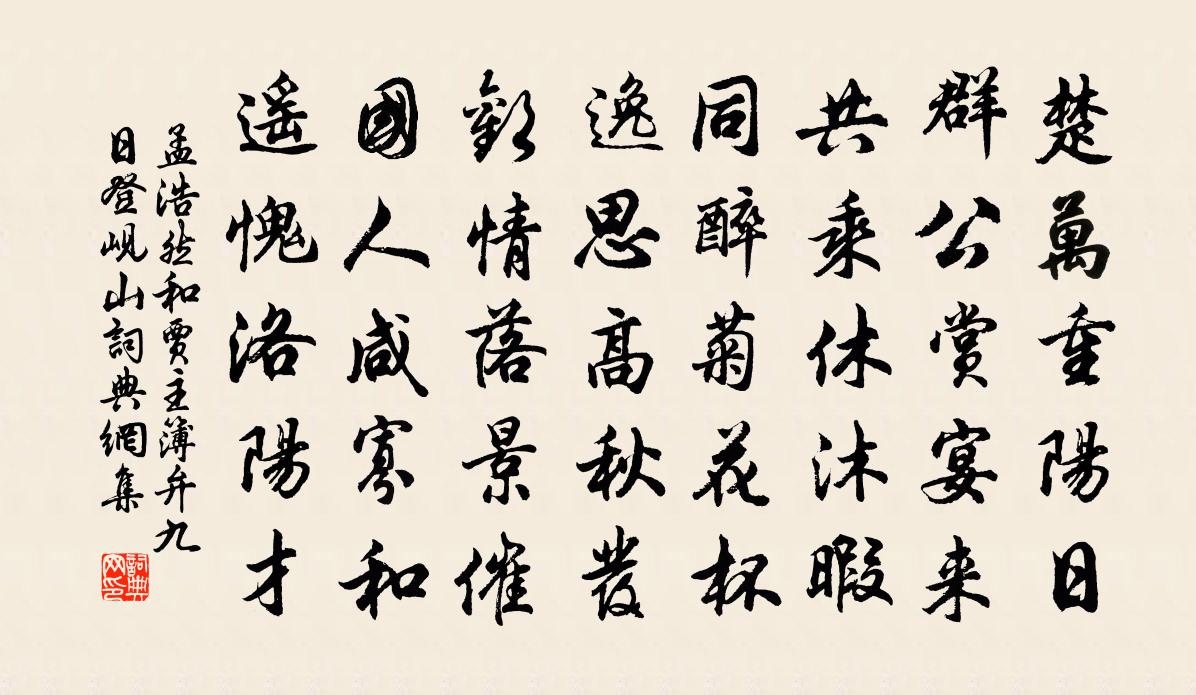 楚萬重陽日
群公賞宴来
共乘休沐暇
同醉菊花杯
逸思高秋發
歡情落景催
國人咸寡和
遥愧洛陽才
孟浩然和賈主簿弁九
日登峴山詞典網集
詞典
网印